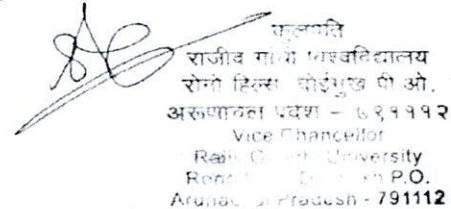 कुलपति
राजीव गांधी विश्वविद्यालय
रोनो हिल्स दोईमुख पी ओ.
अरूणाचल प्रदेश - ७९१११२
Vice Chancellor
Rajiv Gandhi University
Rono P.O.
Arunachal Pradesh - 791112